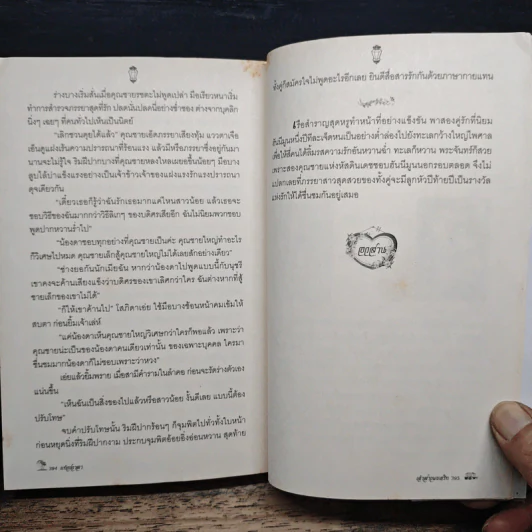 ร่างบางเริ่มสั่นเมื่อคุณชายรชตะไม่พูดเปล่า มือเรียวหนาเริ่ม
ทำการสำรวจภรรยาสุดที่รัก ปลดนั่นปลดนี่อย่างช่ำชอง ต่างจากบุคลิก
นิ่งๆ เฉยๆ ที่คนทั่วไปเห็นเป็นนิตย์
"เลิกชวนคุยได้แล้ว" คุณชายเอ็ดภรรยาเสียงทุ้ม แววตาเจือ
เอ็นดูแฝงเร้นความปรารถนาที่ร้อนแรง แล้วมีหรือภรรยาซึ่งอยู่กันมา
นานจะไม่รู้ใจ ริมฝีปากบางที่คุณชายหลงใหลเผยอขึ้นน้อยๆ มือบาง
ลูบไล้บ่าแข็งแรงอย่างเป็นเจ้าข้าวเจ้าของแฝงแรงปรารถนา
ดุจเดียวกัน
"เดี๋ยวเธอก็รู้ว่าฉันรักเธอมากแค่ไหนสาวน้อย แล้วเธอจะ
ชอบวิธีของฉันมากกว่าวิธีลิเกๆ ของบดิศรเสียอีก ฉันไม่นิยมพวกชอบ
พูดปากหวานร่ำไป"
"น้องดาชอบทุกอย่างที่คุณชายเป็นค่ะ คุณชายใหญ่ทำอะไร
ก็วิเศษไปหมด คุณชายเล็กสู้คุณชายใหญ่ไม่ได้เลยสักอย่างเดียว"
"ช่างยอกันนักเมียฉัน หากว่าน้องดาไปพูดแบบนี้กับนุชรี
เขาคงจะค้านเสียงแข็งว่าบดิศรของเขาเลิศกว่าใคร ฉันต่างหากที่สู้
ชายเล็กของเขาไม่ได้"
"ก็ให้เขาค้านไป" โสภิตาเอ่ย ใช้มือบางช้อนหน้าคมเข้มให้
สบตา ก่อนยิ้มเจ้าเล่ห์
"แค่น้องดาเห็นคุณชายใหญ่วิเศษกว่าใครก็พอแล้ว เพราะว่า
คุณชายน่ะเป็นของน้องดาคนเดียวเท่านั้น ของเฉพาะบุคคล ใครมา
ชื่นชมมากน้องดาก็ไม่ชอบเพราะว่าหวง"
เอ่ยแล้วยิ้มพราย เมื่อสามีคำรามในลำคอ ก่อนจะรัดร่างตัวเอง
แน่นขึ้น
"เห็นฉันเป็นสิ่งของไปแล้วหรือสาวน้อย งั้นดีเลย แบบนี้ต้อง
ปรับโทษ"
จบคำปรับโทษนั้น ริมฝีปากร้อนๆ ก็จุมพิตไปทั่วทั้งใบหน้า
ก่อนหยุดนิ่งที่ริมฝีปากงาม ประกบจุมพิตอ้อยอิ่งอ่อนหวาน สุดท้าย
ทั้งคู่ก็สมัครใจไม่พูดอะไรอีกเลย ยินดีสื่อสารรักกันด้วยภาษากายแทน
เรือสำราญสุดหรูทำหน้าที่อย่างแข็งขัน พาสองคู่รักที่นิยม
ฮันนีมูนหนึ่งปีทีละเจ็ดหนเป็นอย่างต่ำล่องไปยังทะเลกว้างใหญ่ไพศาล
เพื่อให้สี่คนได้ลิ้มรสความรักอันหวานฉ่ำ ทะเลก็หวาน พระจันทร์ก็สวย
เพราะสองคุณชายแห่งหัสดินเดชชอบฮันนีมูนนอกรอบตลอด จึงไม่
แปลกเลยที่ภรรยาสาวสุดสวยของทั้งคู่จะมีลูกหัวปีท้ายปีเป็นรางวัล
แห่งรักให้ได้ชื่นชมกันอยู่เสมอ
อวสาน